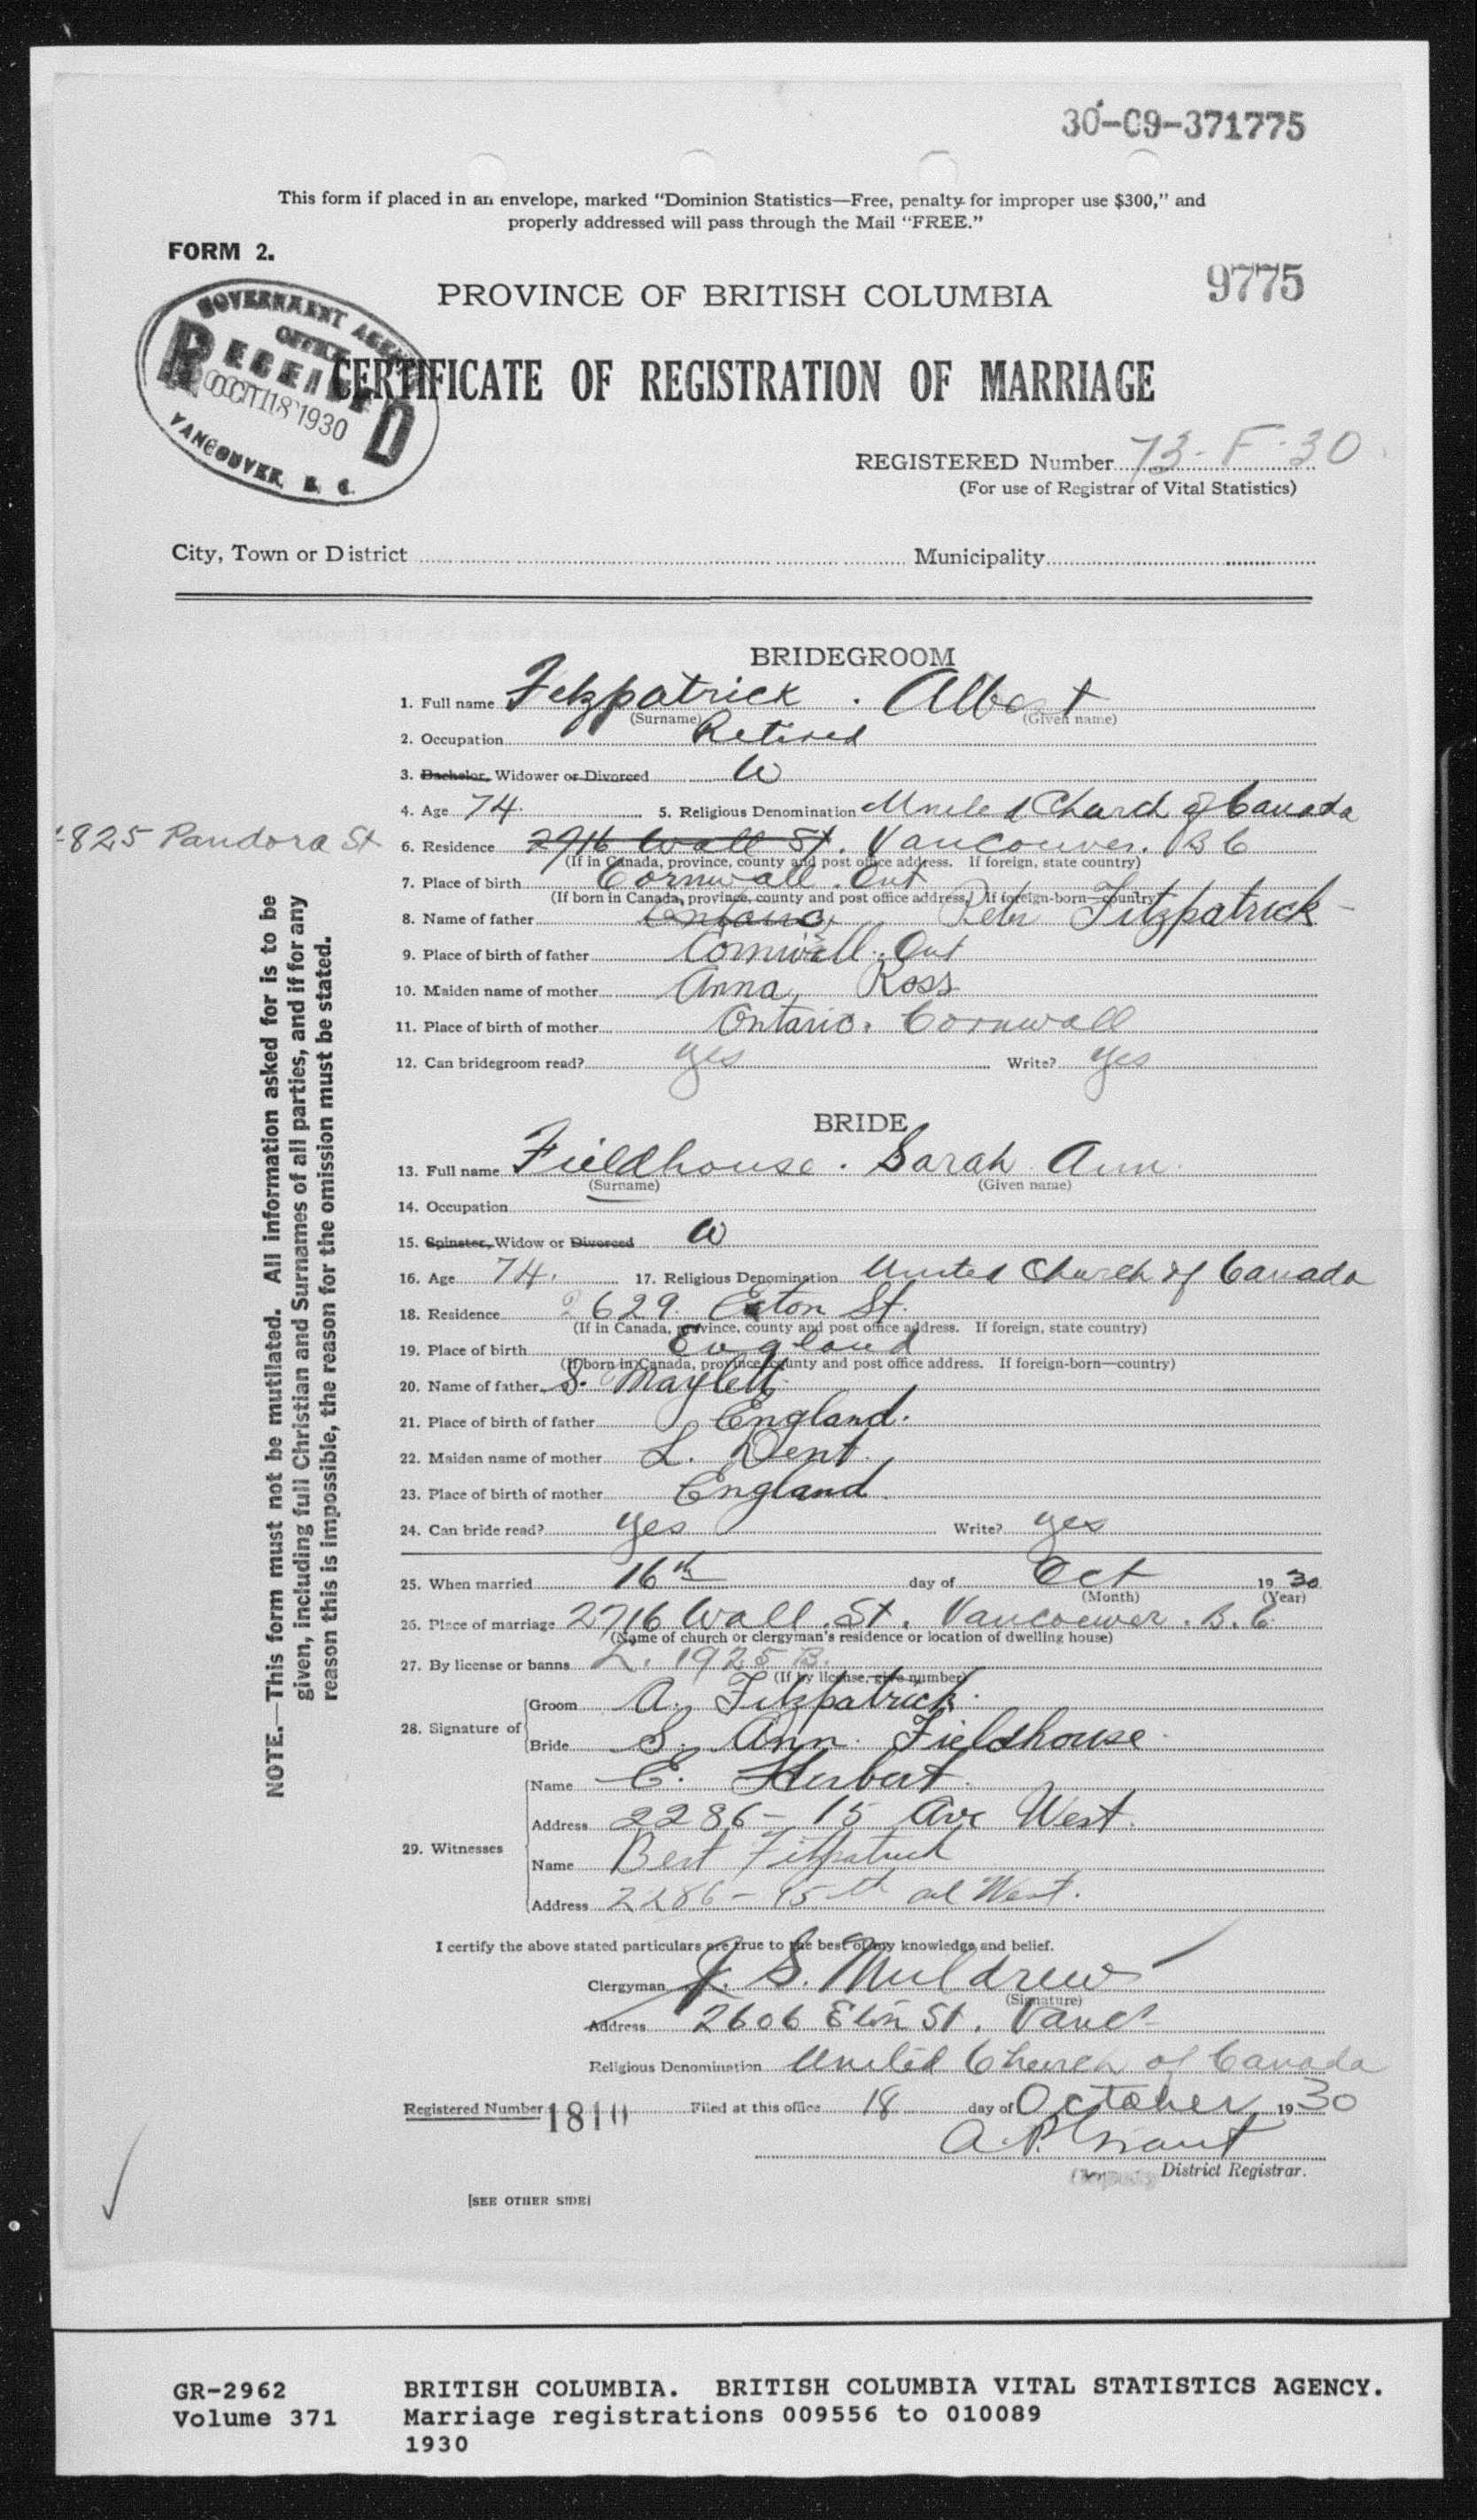 30-09-371775
This form if placed in an envelope, marked "Dominion Statistics—Free, penalty for improper use $300," and
properly addressed will pass through the Mail "FREE."
FORM 2.
9775
PROVINCE OF BRITISH COLUMBIA
GOVERNMENT AGENT
OFFICE
RECEIVED
OCT 18 1930
VANCOUVER, B. C.
CERTIFICATE OF REGISTRATION OF MARRIAGE
REGISTERED Number 73-F-30
(For use of Registrar of Vital Statistics)
City, Town or District Municipality
BRIDEGROOM
1. Full name Fitzpatrick . Albert
(Surname) (Given name)
2. Occupation Retired
3. Bachelor, Widower or Divorced W
4. Age 74. 5. Religious Denomination United Church of Canada
825 Pandora St 6. Residence 2716 Wall St. Vancouver. B C
(If in Canada, province, county and post office address. If foreign, state country)
7. Place of birth Cornwall. Ont
(If born in Canada, province, county and post office address. If foreign-born—country)
8. Name of father Ontario, Peter Fitzpatrick
9. Place of birth of father Cornwall. Ont
10. Maiden name of mother Anna, Ross
11. Place of birth of mother Ontario. Cornwall
12. Can bridegroom read? yes Write? yes
BRIDE
13. Full name Fieldhouse. Sarah Ann
(Surname) (Given name)
14. Occupation
15. Spinster, Widow or Divorced W
16. Age 74. 17. Religious Denomination United Church of Canada
18. Residence 2629. Eton St.
(If in Canada, province, county and post office address. If foreign, state country)
19. Place of birth England
(If born in Canada, province, county and post office address. If foreign-born—country)
20. Name of father S. Maylett
21. Place of birth of father England.
22. Maiden name of mother L. Dent.
23. Place of birth of mother England
24. Can bride read? yes Write? yes
25. When married 16th day of Oct 19 30
(Month) (Year)
26. Place of marriage 2716 Wall. St. Vancouver. B. C.
(Name of church or clergyman's residence or location of dwelling house)
27. By license or banns L. 1925 B.
(If by license, give number)
28. Signature of
Groom A. Fitzpatrick.
Bride S. Ann. Fieldhouse
29. Witnesses
Name E. Herbert.
Address 2286-15 Ave West.
Name Bert Fitzpatrick
Address 2286-15th West.
I certify the above stated particulars are true to the best of my knowledge and belief.
Clergyman J. S. Muldrew
(Signature)
Address 2606 Eton St. Vancr
Religious Denomination United Church of Canada
Registered Number 1810 Filed at this office 18 day of October 19 30
A. P. Grant
District Registrar.
[SEE OTHER SIDE]
NOTE.—This form must not be mutilated. All information asked for is to be
given, including full Christian and Surnames of all parties, and if for any
reason this is impossible, the reason for the omission must be stated.
GR-2962 BRITISH COLUMBIA. BRITISH COLUMBIA VITAL STATISTICS AGENCY.
Volume 371 Marriage registrations 009556 to 010089
1930